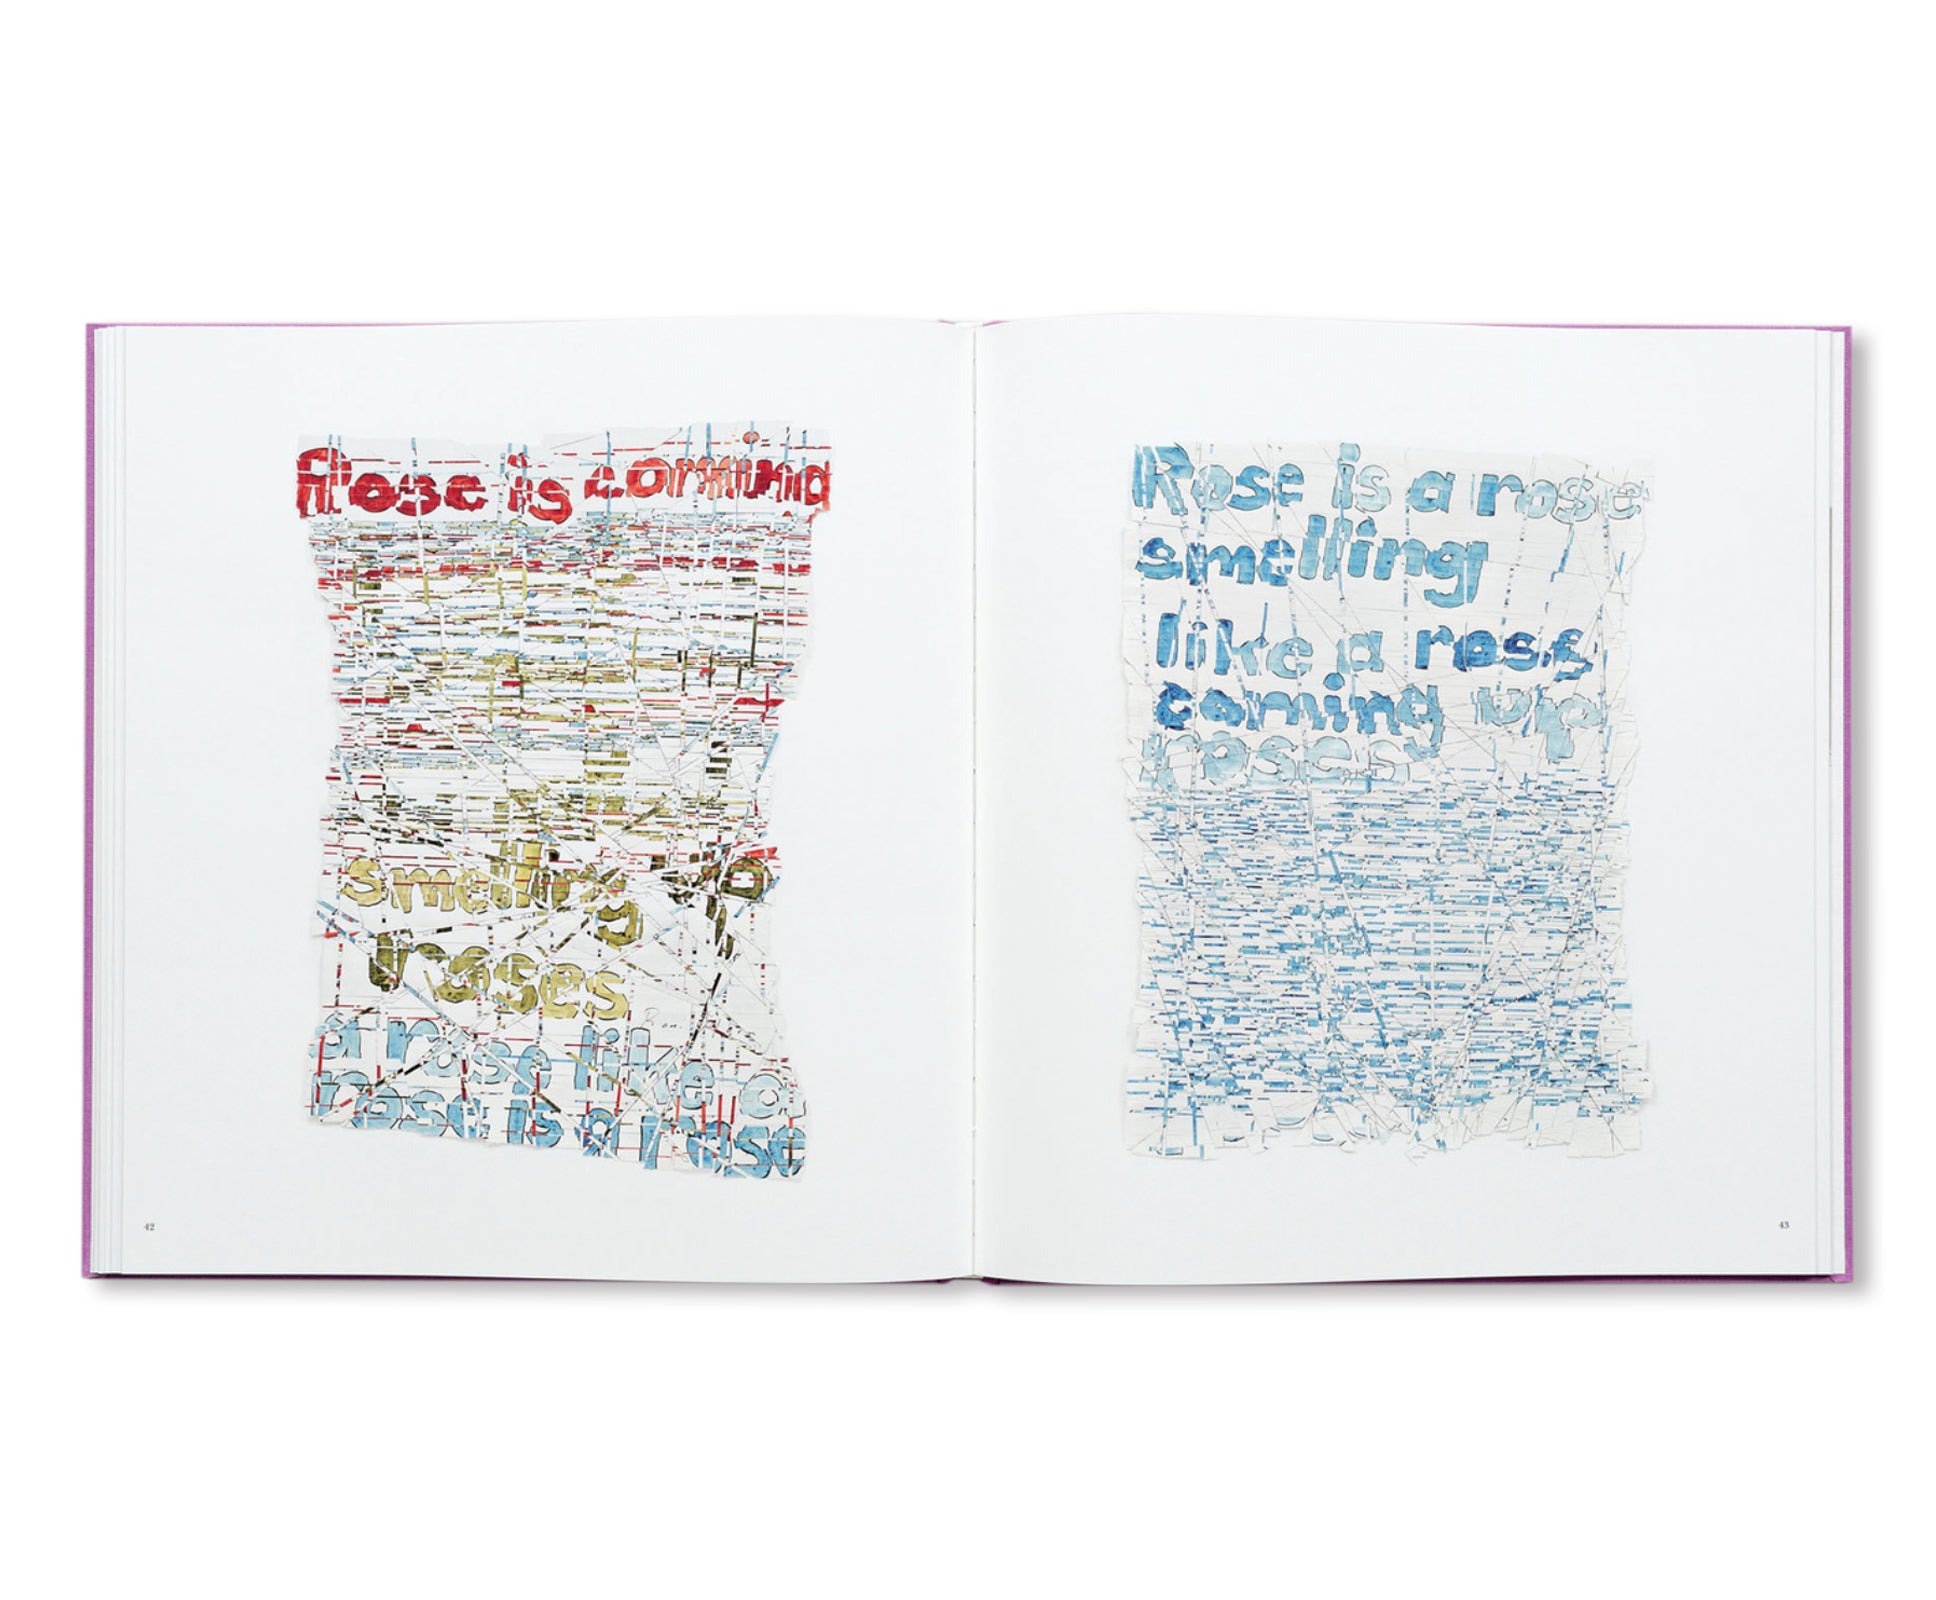 Rose is coming
smelling up
roses
a rose like a
rose is a rose
42
Rose is a rose
smelling
like a rose
coming up
roses
43